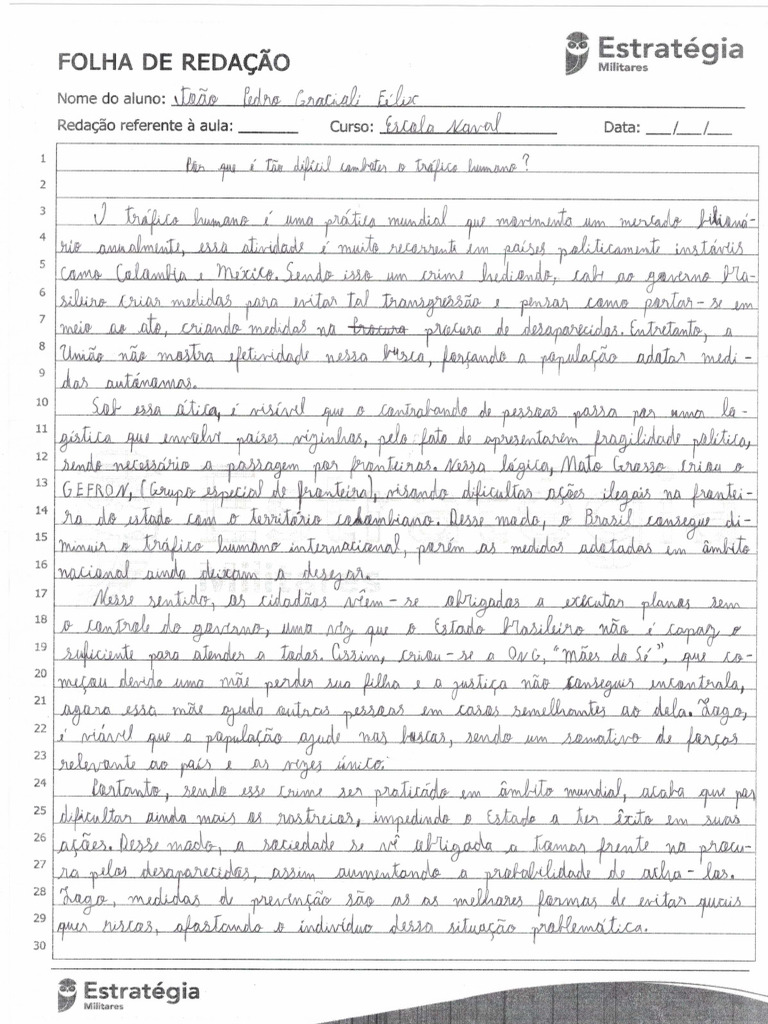 FOLHA DE REDAÇÃO
Estratégia
Militares
Nome do aluno: João Pedro Graciali Félix
Redação referente à aula: ______ Curso: Escola Naval Data: __/__/__
1 Por que é tão difícil combater o tráfico humano?
2
3 O tráfico humano é uma prática mundial que movimenta um mercado bilioná-
4 rio anualmente, essa atividade é muito recorrente em países politicamente instáveis
5 como Colombia e México. Sendo isso um crime hediondo, cabe ao governo bra-
6 sileiro criar medidas para evitar tal transgressão e pensar como portar-se em
7 meio ao ato, criando medidas na procura de desaparecidos. Entretanto, a
8 União não mostra efetividade nessa busca, forçando a população adotar medi-
9 das autônomas.
10 Sob essa ótica, é visível que o contrabando de pessoas passa por uma lo-
11 gística que envolve países vizinhos, pelo fato de apresentarem fragilidade política,
12 sendo necessário a passagem por fronteiras. Nessa lógica, Mato Grosso criou o
13 GEFRON, (Grupo especial de fronteira), visando dificultar ações ilegais na frontei-
14 ra do estado com o território colombiano. Desse modo, o Brasil consegue di-
15 minuir o tráfico humano internacional, porém as medidas adotadas em âmbito
16 nacional ainda deixam a desejar.
17 Nesse sentido, os cidadãos vêem-se obrigados a executar planos sem
18 o controle do governo, uma vez que o Estado brasileiro não é capaz o
19 suficiente para atender a todos. Assim, criou-se a ONG, "Mães da Sé", que co-
20 meçou devido uma mãe perder sua filha e a justiça não conseguir encontrala,
21 agora essa mãe ajuda outras pessoas em casos semelhantes ao dela. Logo,
22 é viável que a população ajude nas buscas, sendo um somativo de forças
23 relevante ao país e as vezes único.
24 Portanto, sendo esse crime ser praticado em âmbito mundial, acaba que por
25 dificultar ainda mais os rastreios, impedindo o Estado a ter êxito em suas
26 ações. Desse modo, a sociedade se vê obrigada a tomar frente na procu-
27 ra pelos desaparecidos, assim aumentando a probabilidade de acha-los.
28 Logo, medidas de prevenção são as as melhores formas de evitar quais
29 quer riscos, afastando o indivíduo dessa situação problemática.
30
Estratégia
Militares